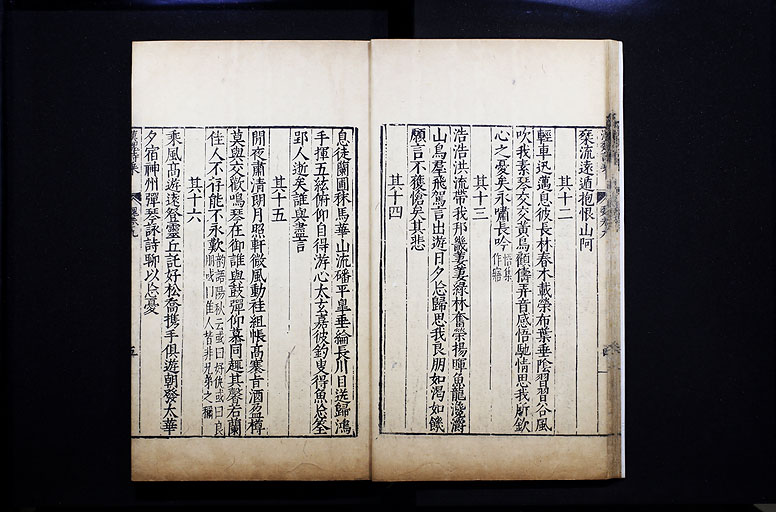 琴流遠遁抱恨山阿
其十二
輕車迅邁息彼長林春木載榮布葉垂陰習習谷風
吹我素琴交交黃鳥顧儔弄音感悟馳情思我所欽
心之憂矣永嘯長吟 悟集作寤
其十三
浩浩洪流帶我邦畿萋萋綠林奮榮揚暉魚龍瀺灂
山鳥羣飛駕言出遊日夕忘歸思我良朋如渴如饑
願言不獲愴矣其悲
其十四
息徒蘭圃秣馬華山流磻平皐垂綸長川目送歸鴻
手揮五絃俯仰自得游心太玄嘉彼釣叟得魚忘筌
郢人逝矣誰與盡言
其十五
閒夜肅清朗月照軒微風動袿組帳高褰旨酒盈樽
莫與交歡鳴琴在御誰與鼓彈仰慕同趣其馨若蘭
佳人不存能不永歎
其十六
乘風高遊遠登靈丘託好松喬攜手俱遊朝發太華
夕宿神州彈琴詠詩聊以忘憂
五